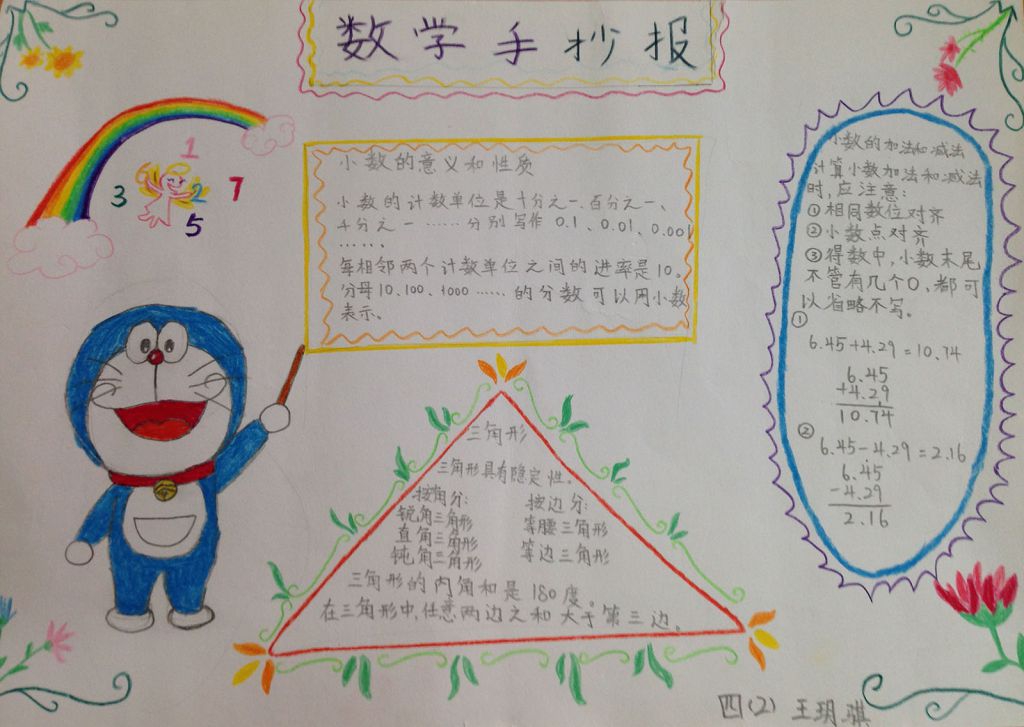 数学手抄报
1
3
2
7
5
小数的意义和性质
小数的计数单位是十分之一、百分之一、
千分之一……分别写作 0.1、0.01、0.001
……、
每相邻两个计数单位之间的进率是10。
分母10、100、1000……的分数可以用小数
表示、
三角形
三角形具有隐定性。
按角分:
锐角三角形
直角三角形
钝角三角形
按边分:
等腰三角形
等边三角形
三角形的内角和是180度。
在三角形中,任意两边之和大于第三边。
小数的加法和减法
计算小数加法和减法
时,应注意:
①相同数位对齐
②小数点对齐
③得数中,小数末尾
不管有几个0,都可
以省略不写。
①
6.45+4.29=10.74
6.45
+4.29
10.74
②
6.45-4.29=2.16
6.45
-4.29
2.16
四(2) 王玥骐